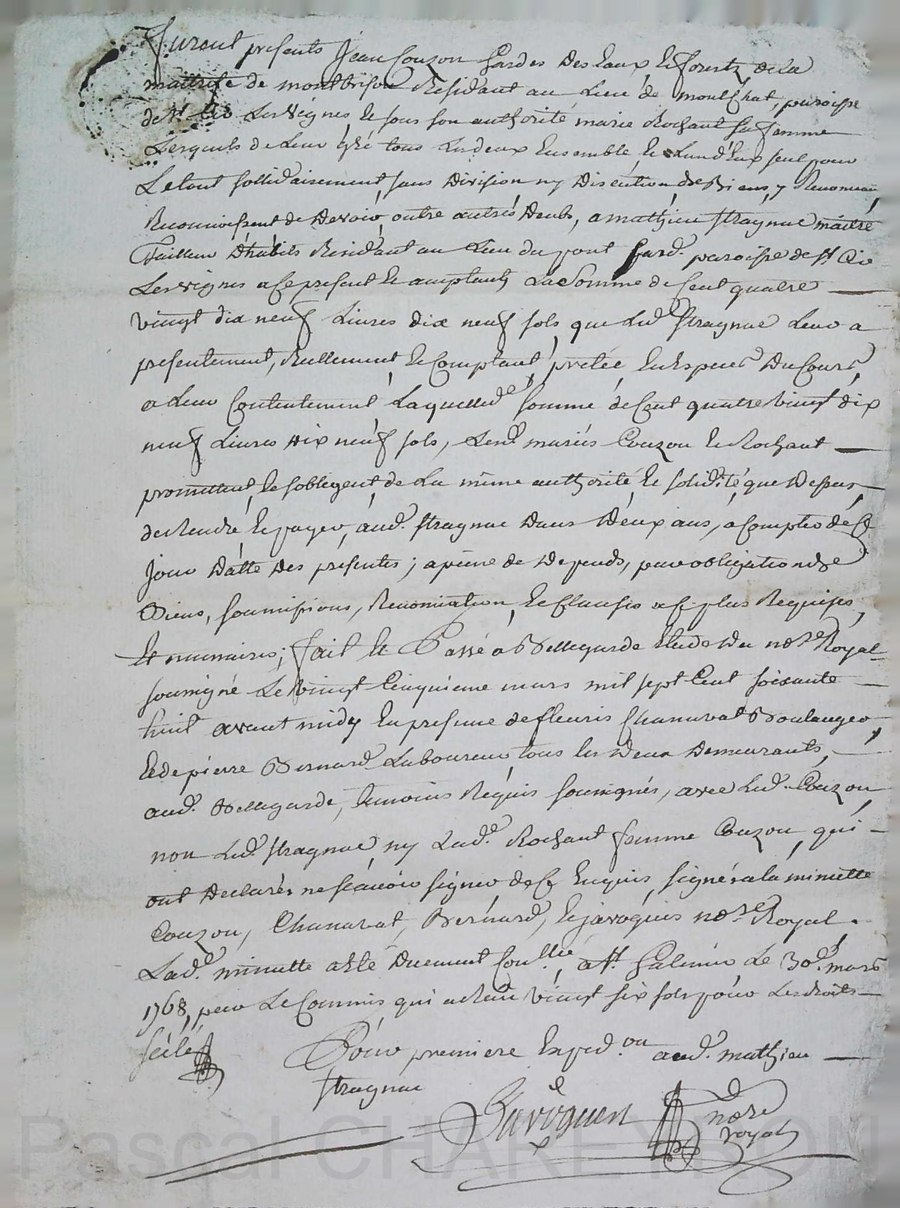 Furent presents Jean Couzon Gardes Des Eaux Et forests de la
maitrise de montbrison Residant au Lieu de montchat, paroisse
de st Cir Les Vignes Et sous son authorité marie Rochant sa femme
Lesquels de Leur gré tous Lesdeux Ensemble, Et Lun d'Eux seul pour
Le tout sollidairement, sans Division ny Discution de Biens, y Renoncent
Reconnoissent de Devoir, outre autres Deubs, a mathieu stragnac maitre
Tailleur D'habits Residant au Lieu du pont paroisse de st Cir
Les Vignes a Ce present Et acceptant La Somme de Cent quatre
vingt dix neuf Livres dix neuf sols, que Led. stragnac Leur a
presentement, Reellement, Et Comptant, pretée, En Especes Du Cours,
a Leur Contentement Laquelle d.e somme de Cent quatre Vingt dix
neuf Livres dix neuf sols, Lesd. mariés Couzon Et Rochant
promettent, Et soblegent de La même authorité Et solidité que Dessus,
de Rendre Et payer, aud. stragnac Dans Deux ans, a Compter de Ce
jour Datte Des presentes; a peine de Depends, par obligation de
Biens, soumissions, Renonciation, Et Clauses a Ce plus Requises,
Et necessaires; fait Et Passé a Bellegarde Etude Du no.re Royal
soussigné Le Vingt Cinquieme mars mil sept Cent soixante
huit avant midy En presence de fleuris Chanavat Boulanger
Et de pierre Bernard Laboureur, tous Les Deux Demeurants,
aud. Bellegarde, temoins Requis soussignés, avec Led. Couzon,
non Led. stragnac ny Lad.e Rochant femme Couzon, qui
ont Declarés ne sçavoir signer de Ce Enquis, signé a la minutte
Couzon, Chanavat, Bernard, Et javogues no.re Royal.
Lad.e minutte a Eté Duement Conllée, a st. Galmier Le 30.e mars
1768, par Le Commis qui a Recu vingt six sols pour Les droits
scélé
Pour premiere Exped.on aud. mathieu
stragnac
Javoguen
no.re
royal
Pascal CHAREYRON